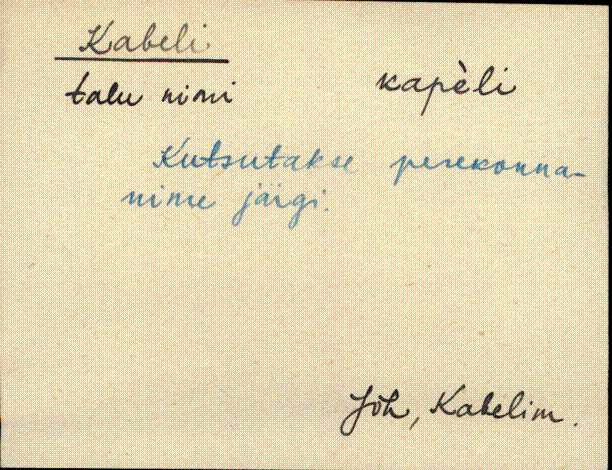 Kabeli
talu nimi kapèli
Kutsutakse perekonna-
nime järgi.
Jõh, Kabelim.